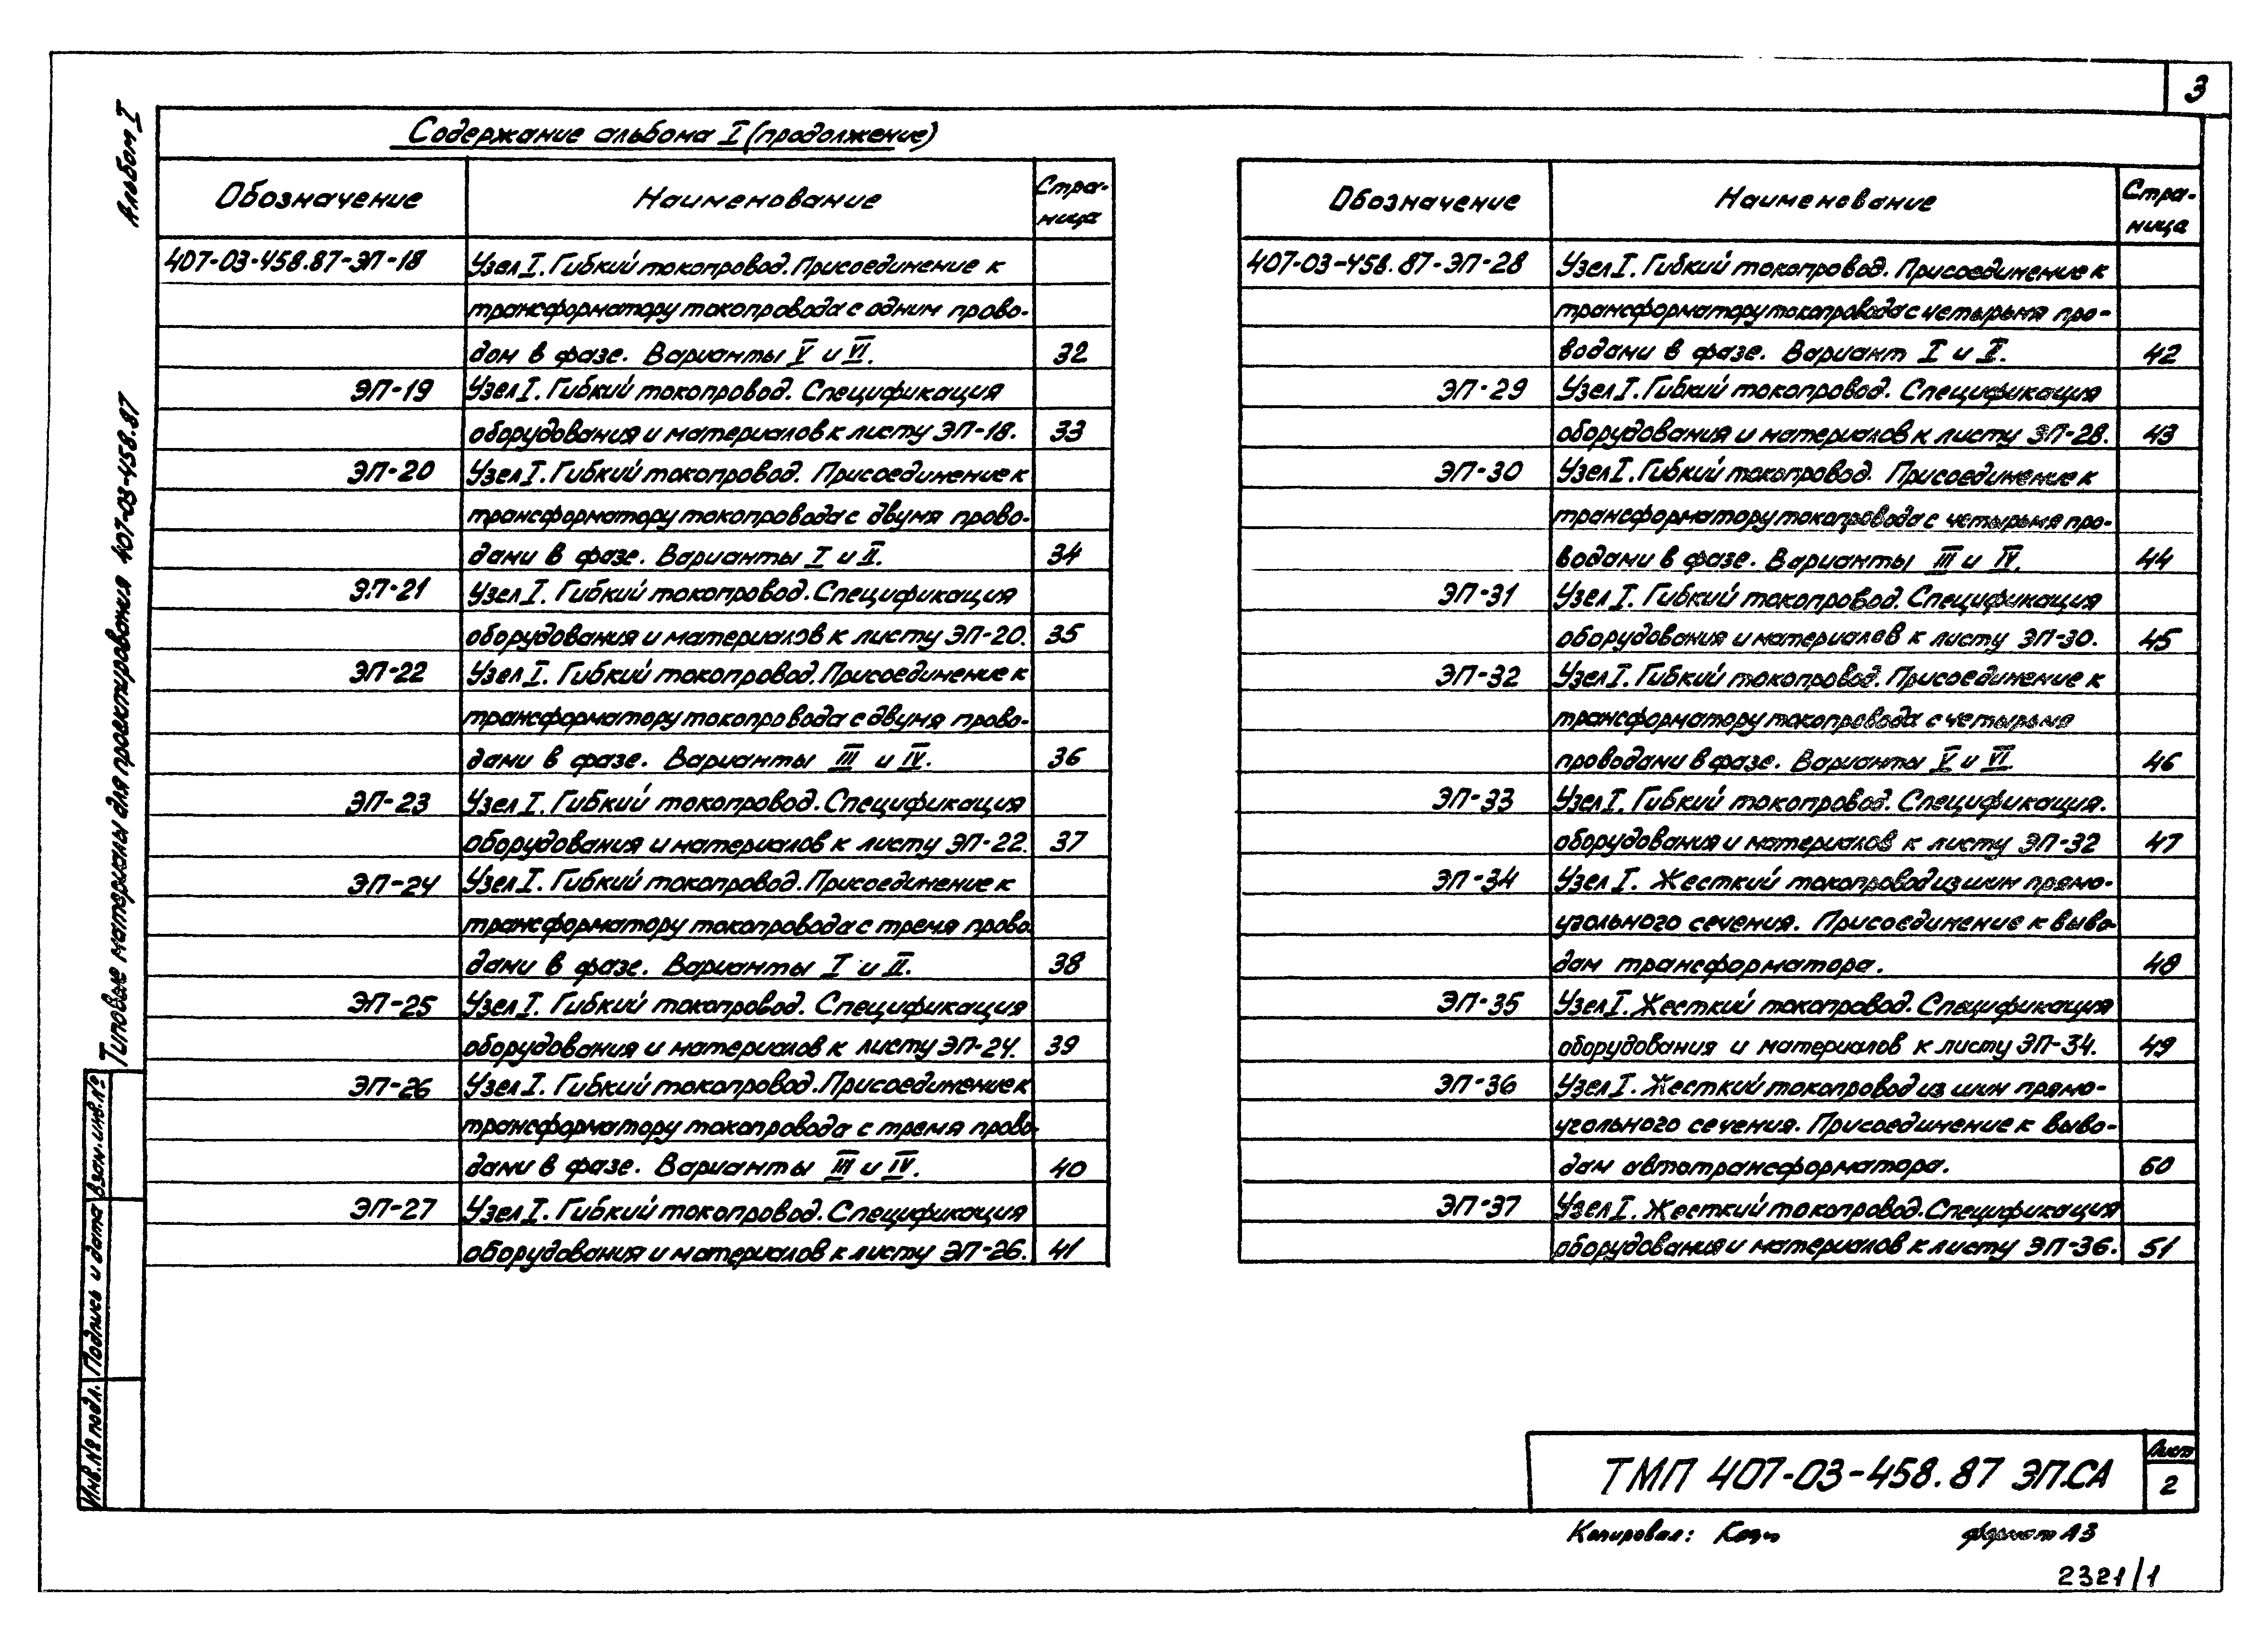 3
Альбом I
Типовые материалы для проектирования 407-03-458.87
Содержание альбома I (продолжение)
Обозначение Наименование Стра-
ница
407-03-458.87-ЭП-18 Узел I. Гибкий токопровод. Присоединение к
трансформатору токопровода с одним прово-
дом в фазе. Варианты V и VI. 32
ЭП-19 Узел I. Гибкий токопровод. Спецификация
оборудования и материалов к листу ЭП-18. 33
ЭП-20 Узел I. Гибкий токопровод. Присоединение к
трансформатору токопровода с двумя прово-
дами в фазе. Варианты I и II. 34
ЭП-21 Узел I. Гибкий токопровод. Спецификация
оборудования и материалов к листу ЭП-20. 35
ЭП-22 Узел I. Гибкий токопровод. Присоединение к
трансформатору токопровода с двумя прово-
дами в фазе. Варианты III и IV. 36
ЭП-23 Узел I. Гибкий токопровод. Спецификация
оборудования и материалов к листу ЭП-22. 37
ЭП-24 Узел I. Гибкий токопровод. Присоединение к
трансформатору токопровода с тремя прово-
дами в фазе. Варианты I и II. 38
ЭП-25 Узел I. Гибкий токопровод. Спецификация
оборудования и материалов к листу ЭП-24. 39
ЭП-26 Узел I. Гибкий токопровод. Присоединение к
трансформатору токопровода с тремя прово-
дами в фазе. Варианты III и IV. 40
ЭП-27 Узел I. Гибкий токопровод. Спецификация
оборудования и материалов к листу ЭП-26. 41
Обозначение Наименование Стра-
ница
407-03-458.87-ЭП-28 Узел I. Гибкий токопровод. Присоединение к
трансформатору токопровода с четырьмя про-
водами в фазе. Вариант I и II. 42
ЭП-29 Узел I. Гибкий токопровод. Спецификация
оборудования и материалов к листу ЭП-28. 43
ЭП-30 Узел I. Гибкий токопровод. Присоединение к
трансформатору токопровода с четырьмя про-
водами в фазе. Варианты III и IV. 44
ЭП-31 Узел I. Гибкий токопровод. Спецификация
оборудования и материалов к листу ЭП-30. 45
ЭП-32 Узел I. Гибкий токопровод. Присоединение к
трансформатору токопровода с четырьмя
проводами в фазе. Варианты V и VI. 46
ЭП-33 Узел I. Гибкий токопровод. Спецификация.
оборудования и материалов к листу ЭП-32 47
ЭП-34 Узел I. Жесткий токопровод из шин прямо-
угольного сечения. Присоединение к выво-
дам трансформатора. 48
ЭП-35 Узел I. Жесткий токопровод. Спецификация
оборудования и материалов к листу ЭП-34. 49
ЭП-36 Узел I. Жесткий токопровод из шин прямо-
угольного сечения. Присоединение к выво-
дам автотрансформатора. 50
ЭП-37 Узел I. Жесткий токопровод. Спецификация
оборудования и материалов к листу ЭП-36. 51
Инв.№ подл. Подпись и дата Взам.инв.№
ТМП 407-03-458.87 ЭП.СА
Лист
2
Копировал: формат А3
2321/1